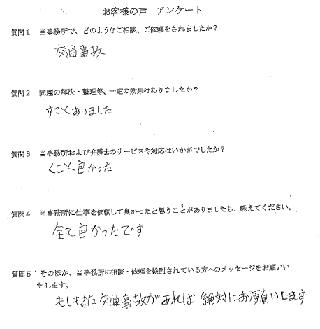 お客様の声 アンケート
質問1 当事務所で、どのようなご相談、ご依頼をされましたか?
交通事故
質問2 問題の解決・整理等、一定の効果はありましたか?
すごくありました
質問3 当事務所および弁護士のサービスや対応はいかがでしたか?
すごく良かった
質問4 当事務所に仕事を依頼して良かったと思うことがありましたら、教えてください。
全て良かったです
質問5 そのほか、当事務所に相談・依頼を検討されている方へのメッセージをお願いい
たします。
もしまた交通事故があれば絶対にお願いします